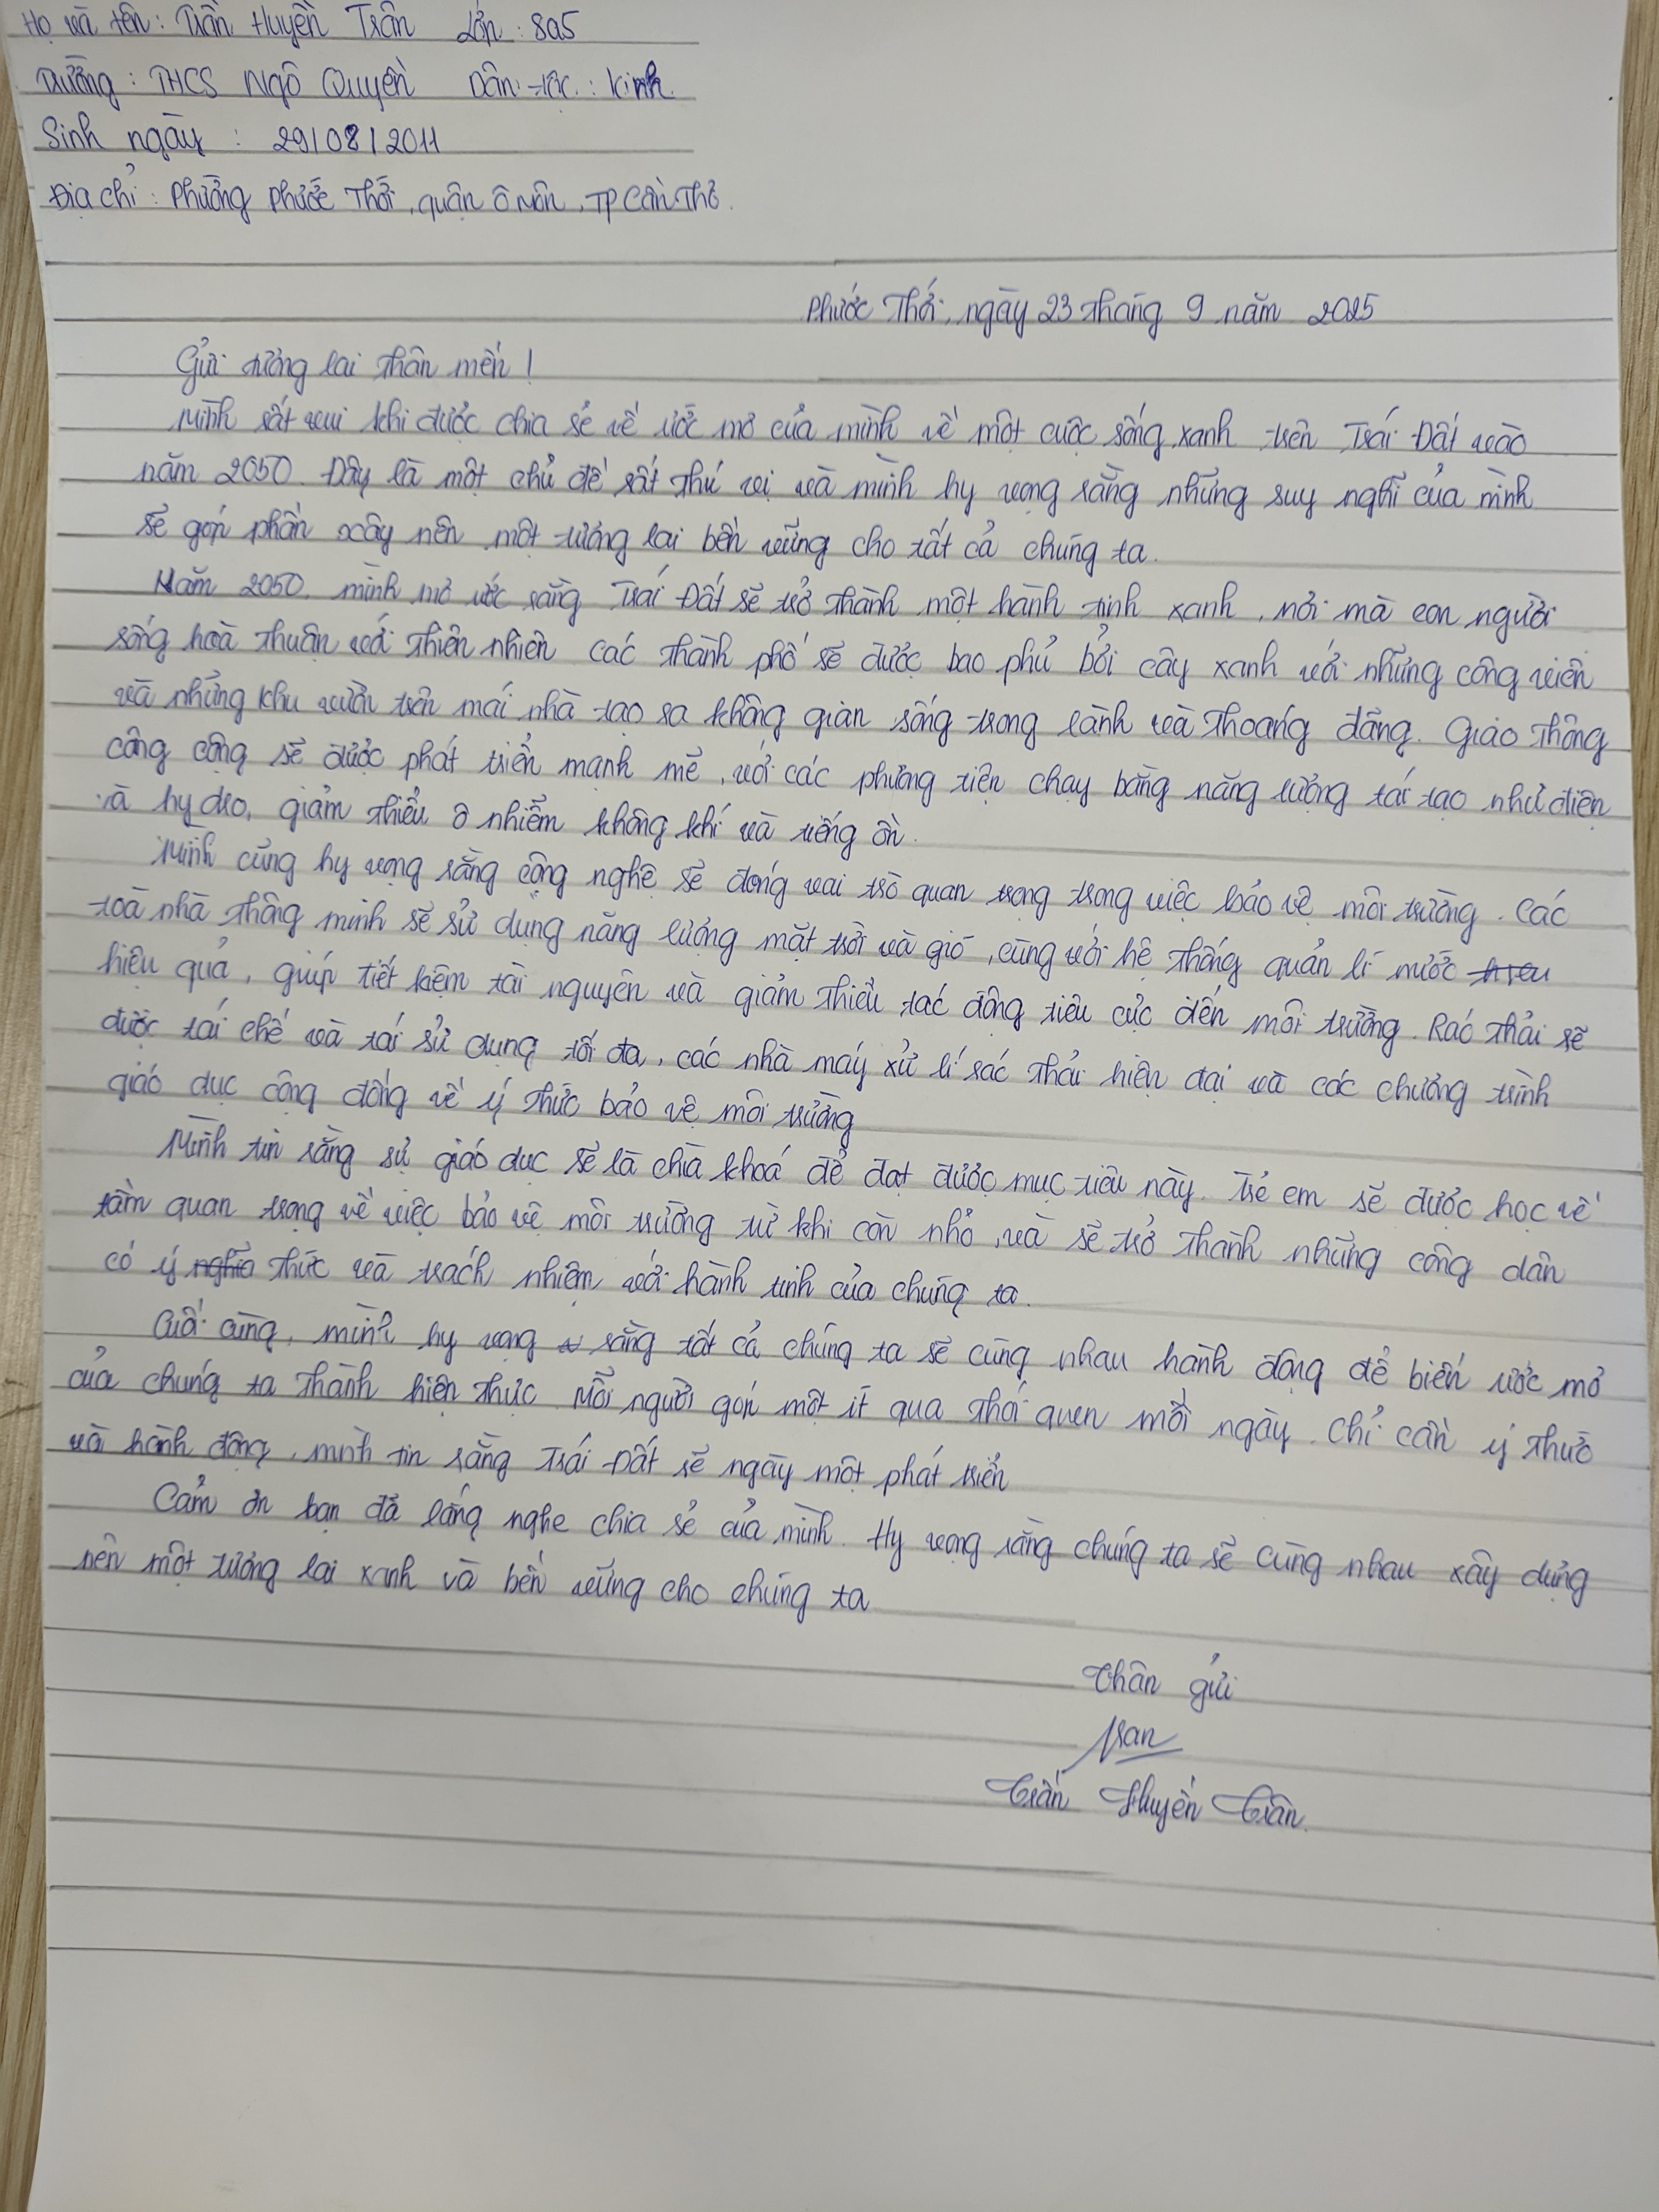 Họ và tên: Trần Huyền Trân Lớp: 8a5
Trường: THCS Ngô Quyền Dân tộc: Kinh.
Sinh ngày: 29/08/2011
Địa chỉ: Phường Phước Thới, quận Ô Môn, TP Cần Thơ.
Phước Thới, ngày 23 tháng 9 năm 2025
Gửi tương lai thân mến!
Mình rất vui khi được chia sẻ về ước mơ của mình về một cuộc sống xanh trên Trái Đất vào
năm 2050. Đây là một chủ đề rất thú vị và mình hy vọng rằng những suy nghĩ của mình
sẽ góp phần xây nên một tương lai bền vững cho tất cả chúng ta.
Năm 2050, mình mơ ước rằng Trái Đất sẽ trở thành một hành tinh xanh, nơi mà con người
sống hoà thuận với thiên nhiên các thành phố sẽ được bao phủ bởi cây xanh với những công viên
và những khu vườn trên mái nhà tạo ra không gian sống trong lành và thoáng đãng. Giao thông
công cộng sẽ được phát triển mạnh mẽ, với các phương tiện chạy bằng năng lượng tái tạo như điện
và hydro, giảm thiểu ô nhiễm không khí và tiếng ồn.
Mình cũng hy vọng rằng công nghệ sẽ đóng vai trò quan trọng trong việc bảo vệ môi trường. Các
toà nhà thông minh sẽ sử dụng năng lượng mặt trời và gió, cùng với hệ thống quản lí nước hieu
hiệu quả, giúp tiết kiệm tài nguyên và giảm thiểu tác động tiêu cực đến môi trường. Rác thải sẽ
được tái chế và tái sử dụng tối đa, các nhà máy xử lí rác thải hiện đại và các chương trình
giáo dục cộng đồng về ý thức bảo vệ môi trường
Mình tin rằng sự giáo dục sẽ là chìa khoá để đạt được mục tiêu này. Trẻ em sẽ được học về
tầm quan trọng về việc bảo vệ môi trường từ khi còn nhỏ, và sẽ trở thành những công dân
có ý nghĩa thức và trách nhiệm với hành tinh của chúng ta.
Cuối cùng, mình hy vọng rằng tất cả chúng ta sẽ cùng nhau hành động để biến ước mơ
của chúng ta thành hiện thực. Mỗi người góp một ít qua thói quen mỗi ngày. Chỉ cần ý thức
và hành động, mình tin rằng Trái Đất sẽ ngày một phát triển
Cảm ơn bạn đã lắng nghe chia sẻ của mình. Hy vọng rằng chúng ta sẽ cùng nhau xây dựng
nên một tương lai xanh và bền vững cho chúng ta
Thân gửi
Tran
Trần Huyền Trân.